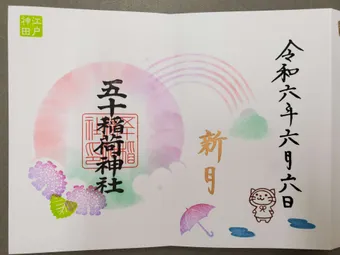 令和六年六月六日
新月
五十稲荷神社
江戸
神田